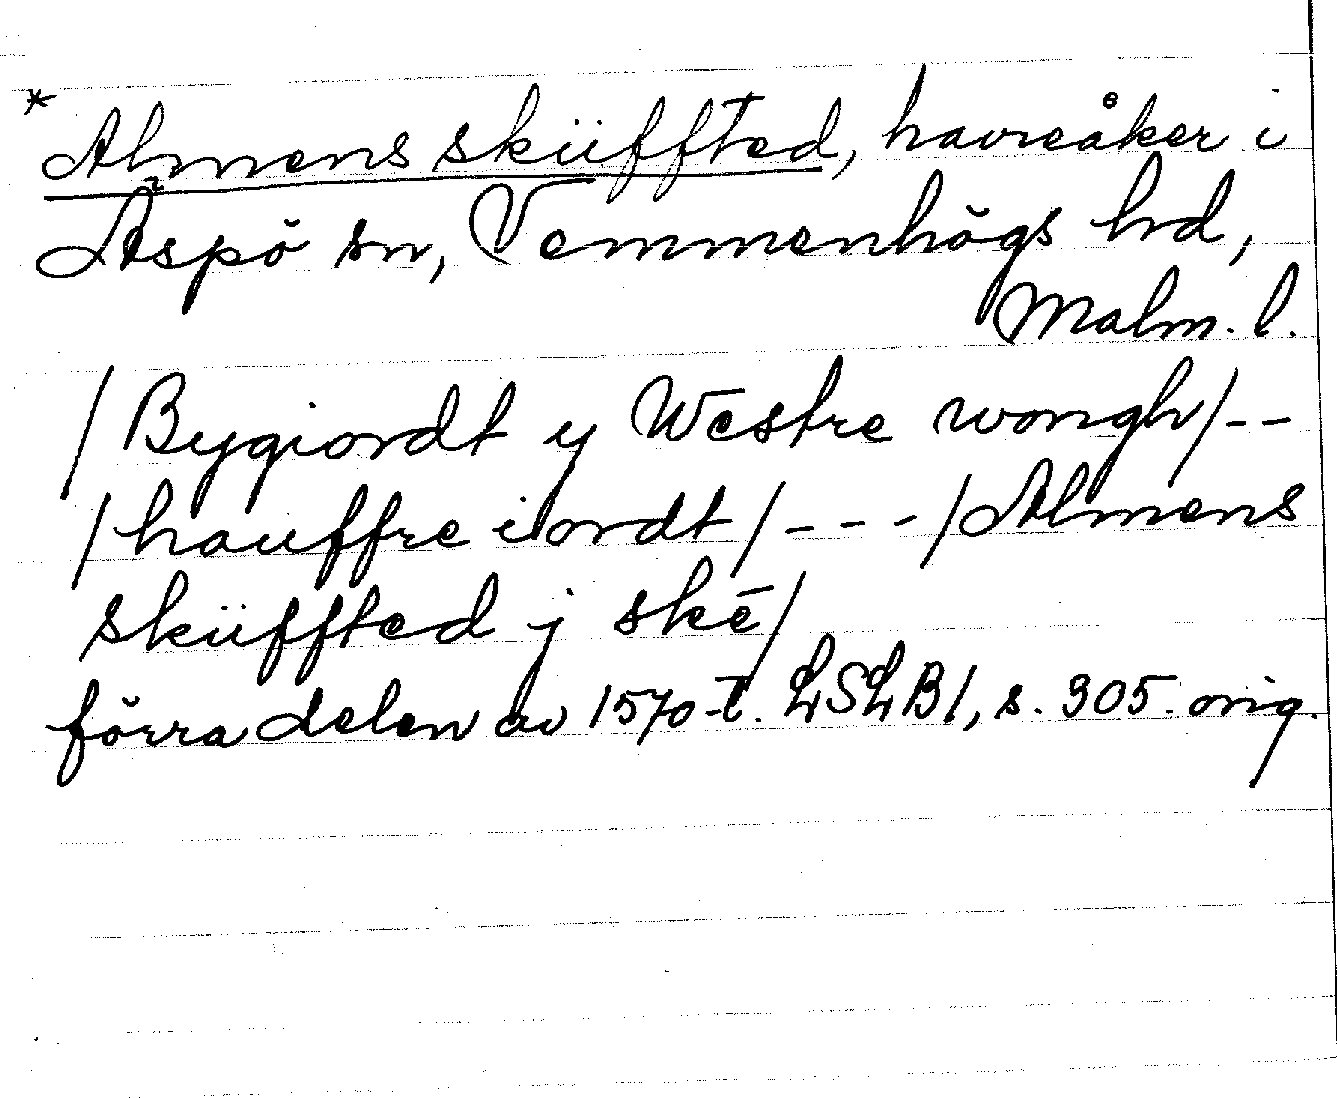 * Almens sküffted, havreåker i
Äspö sn, Vemmenhögs hd,
Malm. l.
/Bygiordt y Westre wongh/--
/hauffre iordt/---/Almens
sküffted j skē/
förra delen av 1570-t. LSLB1, s. 305. orig.